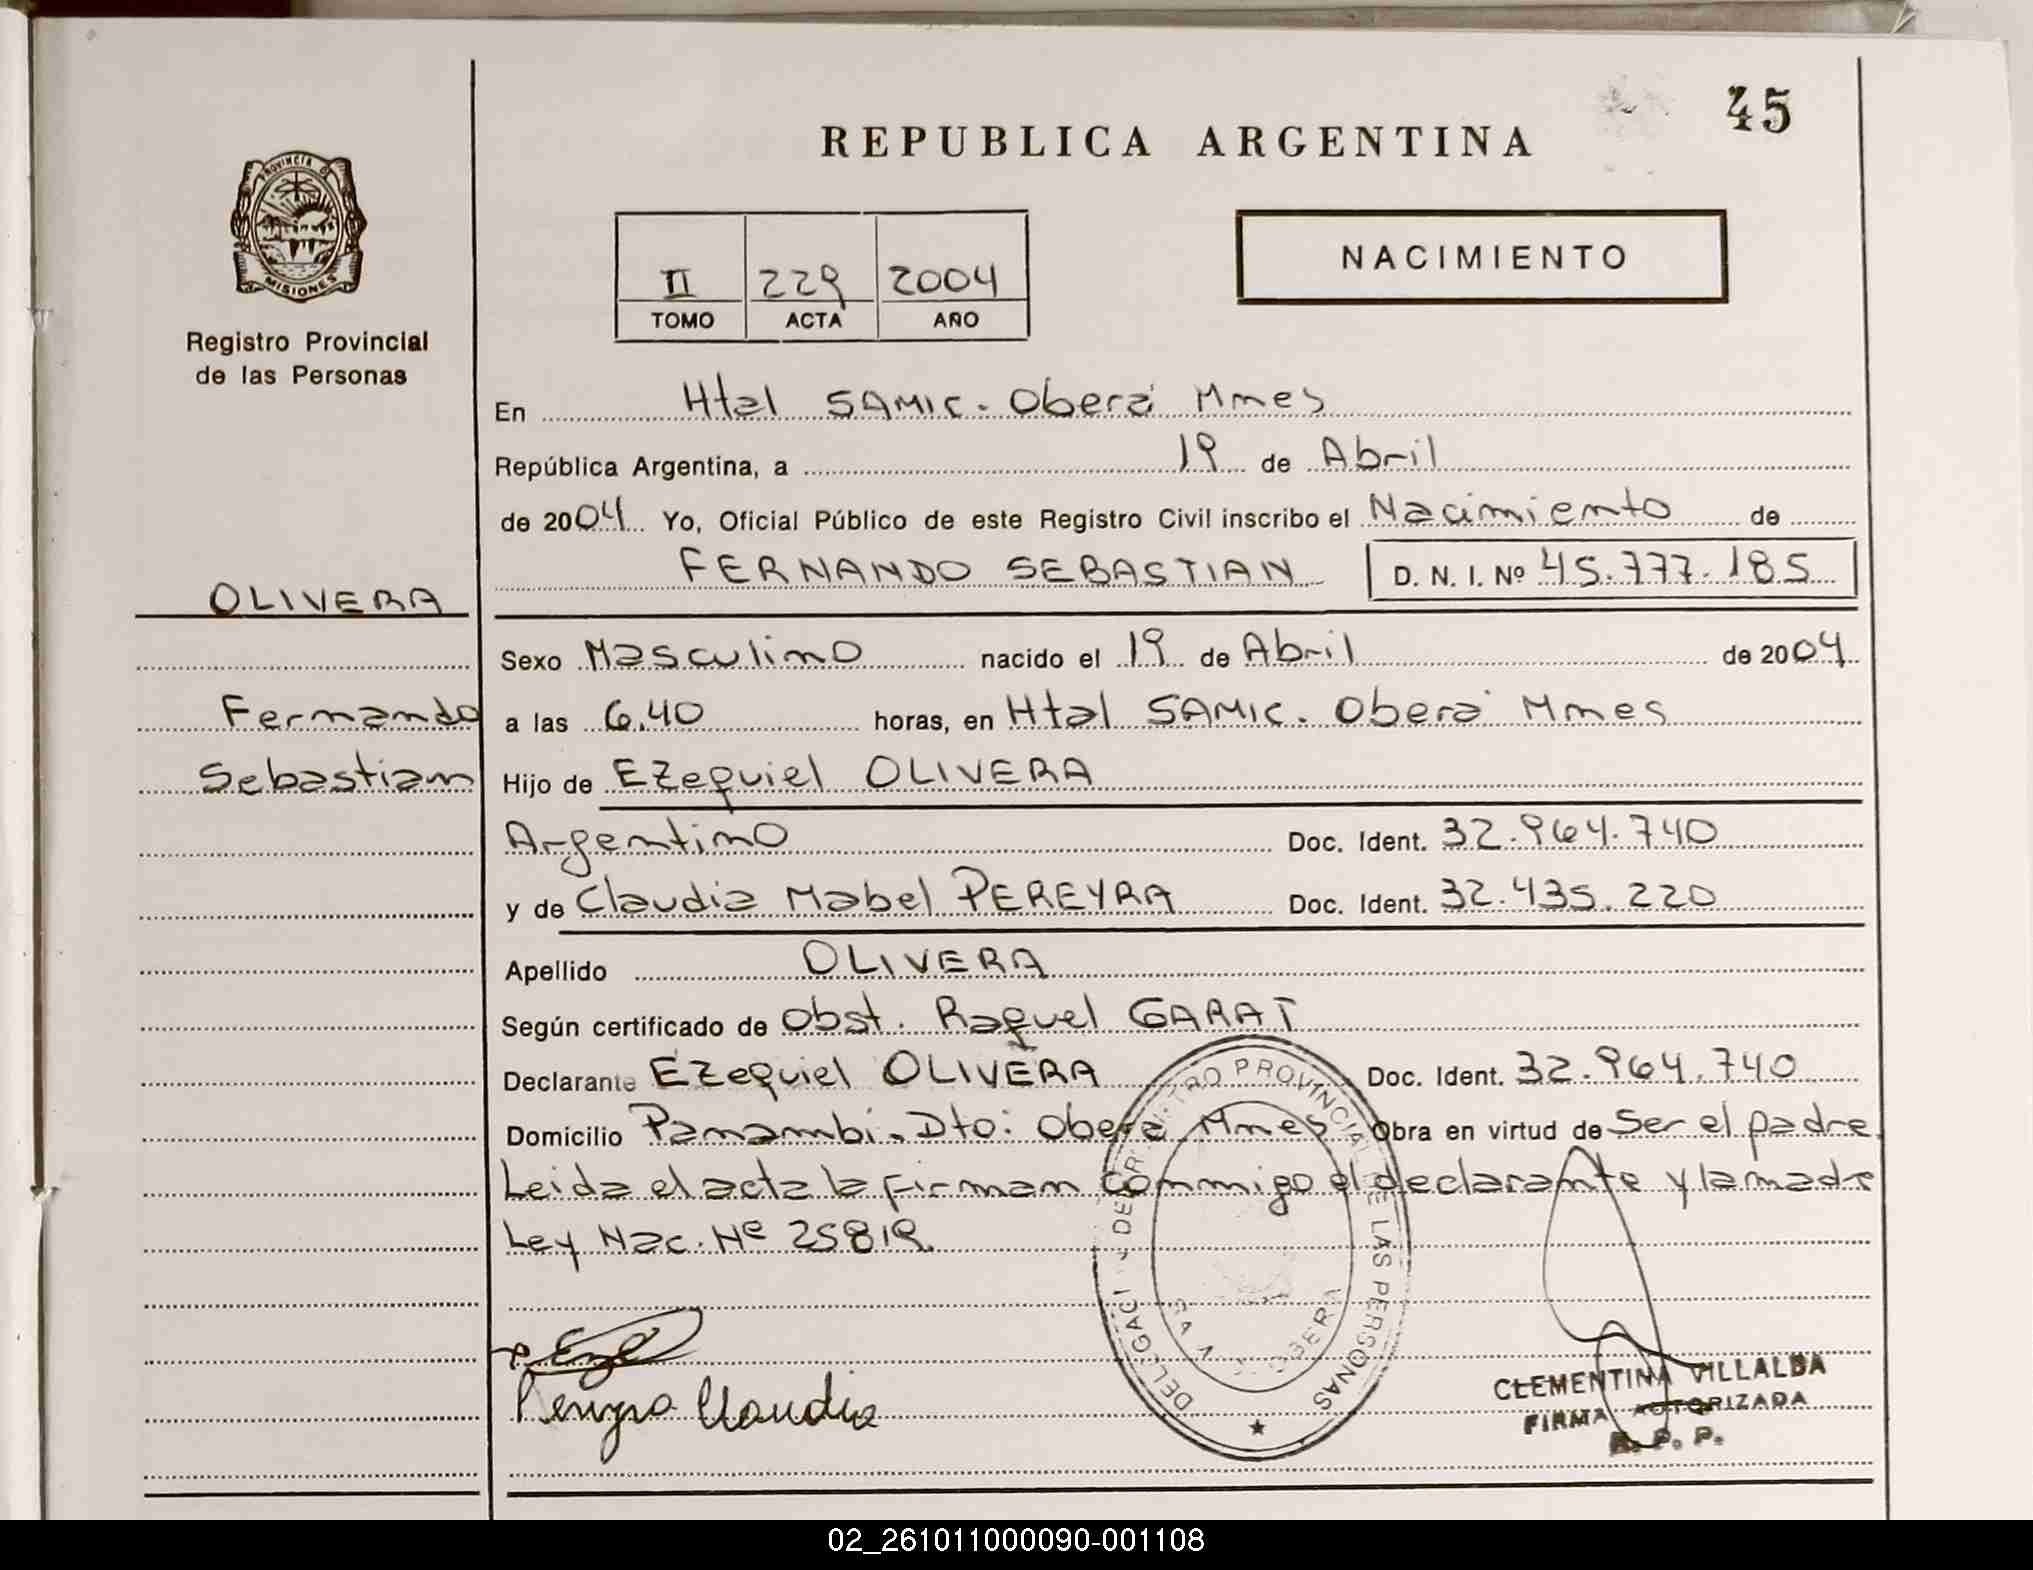 45
REPUBLICA ARGENTINA
PROVINCIA D
MISIONES
Registro Provincial
de las Personas
II 229 2004
TOMO ACTA AÑO
NACIMIENTO
En Htal SAMIC. Oberá Mnes
República Argentina, a 19 de Abril
de 2004 Yo, Oficial Público de este Registro Civil inscribo el Nacimiento de
FERNANDO SEBASTIAN D. N. I. Nº 45.777.185
OLIVERA
Fernando
Sebastian
Sexo Masculino nacido el 19 de Abril de 2004
a las 6.40 horas, en Htal SAMIC. Oberá Mnes
Hijo de Ezequiel OLIVERA
Argentino Doc. Ident. 32.964.740
y de Claudia Mabel PEREYRA Doc. Ident. 32.435.220
Apellido OLIVERA
Según certificado de Obst. Raquel GARAT
Declarante Ezequiel OLIVERA Doc. Ident. 32.964.740
Domicilio Panambí. Dto: Oberá Mnes Obra en virtud de Ser el padre.
Leida el acta la firman conmigo el declarante y la madre
Ley Nac. Nº 25819.
Pereyra Claudia
DE LAS PERSONAS
CLEMENTINA VILLALBA
FIRMA AUTORIZADA
R. P. P.
02_261011000090-001108